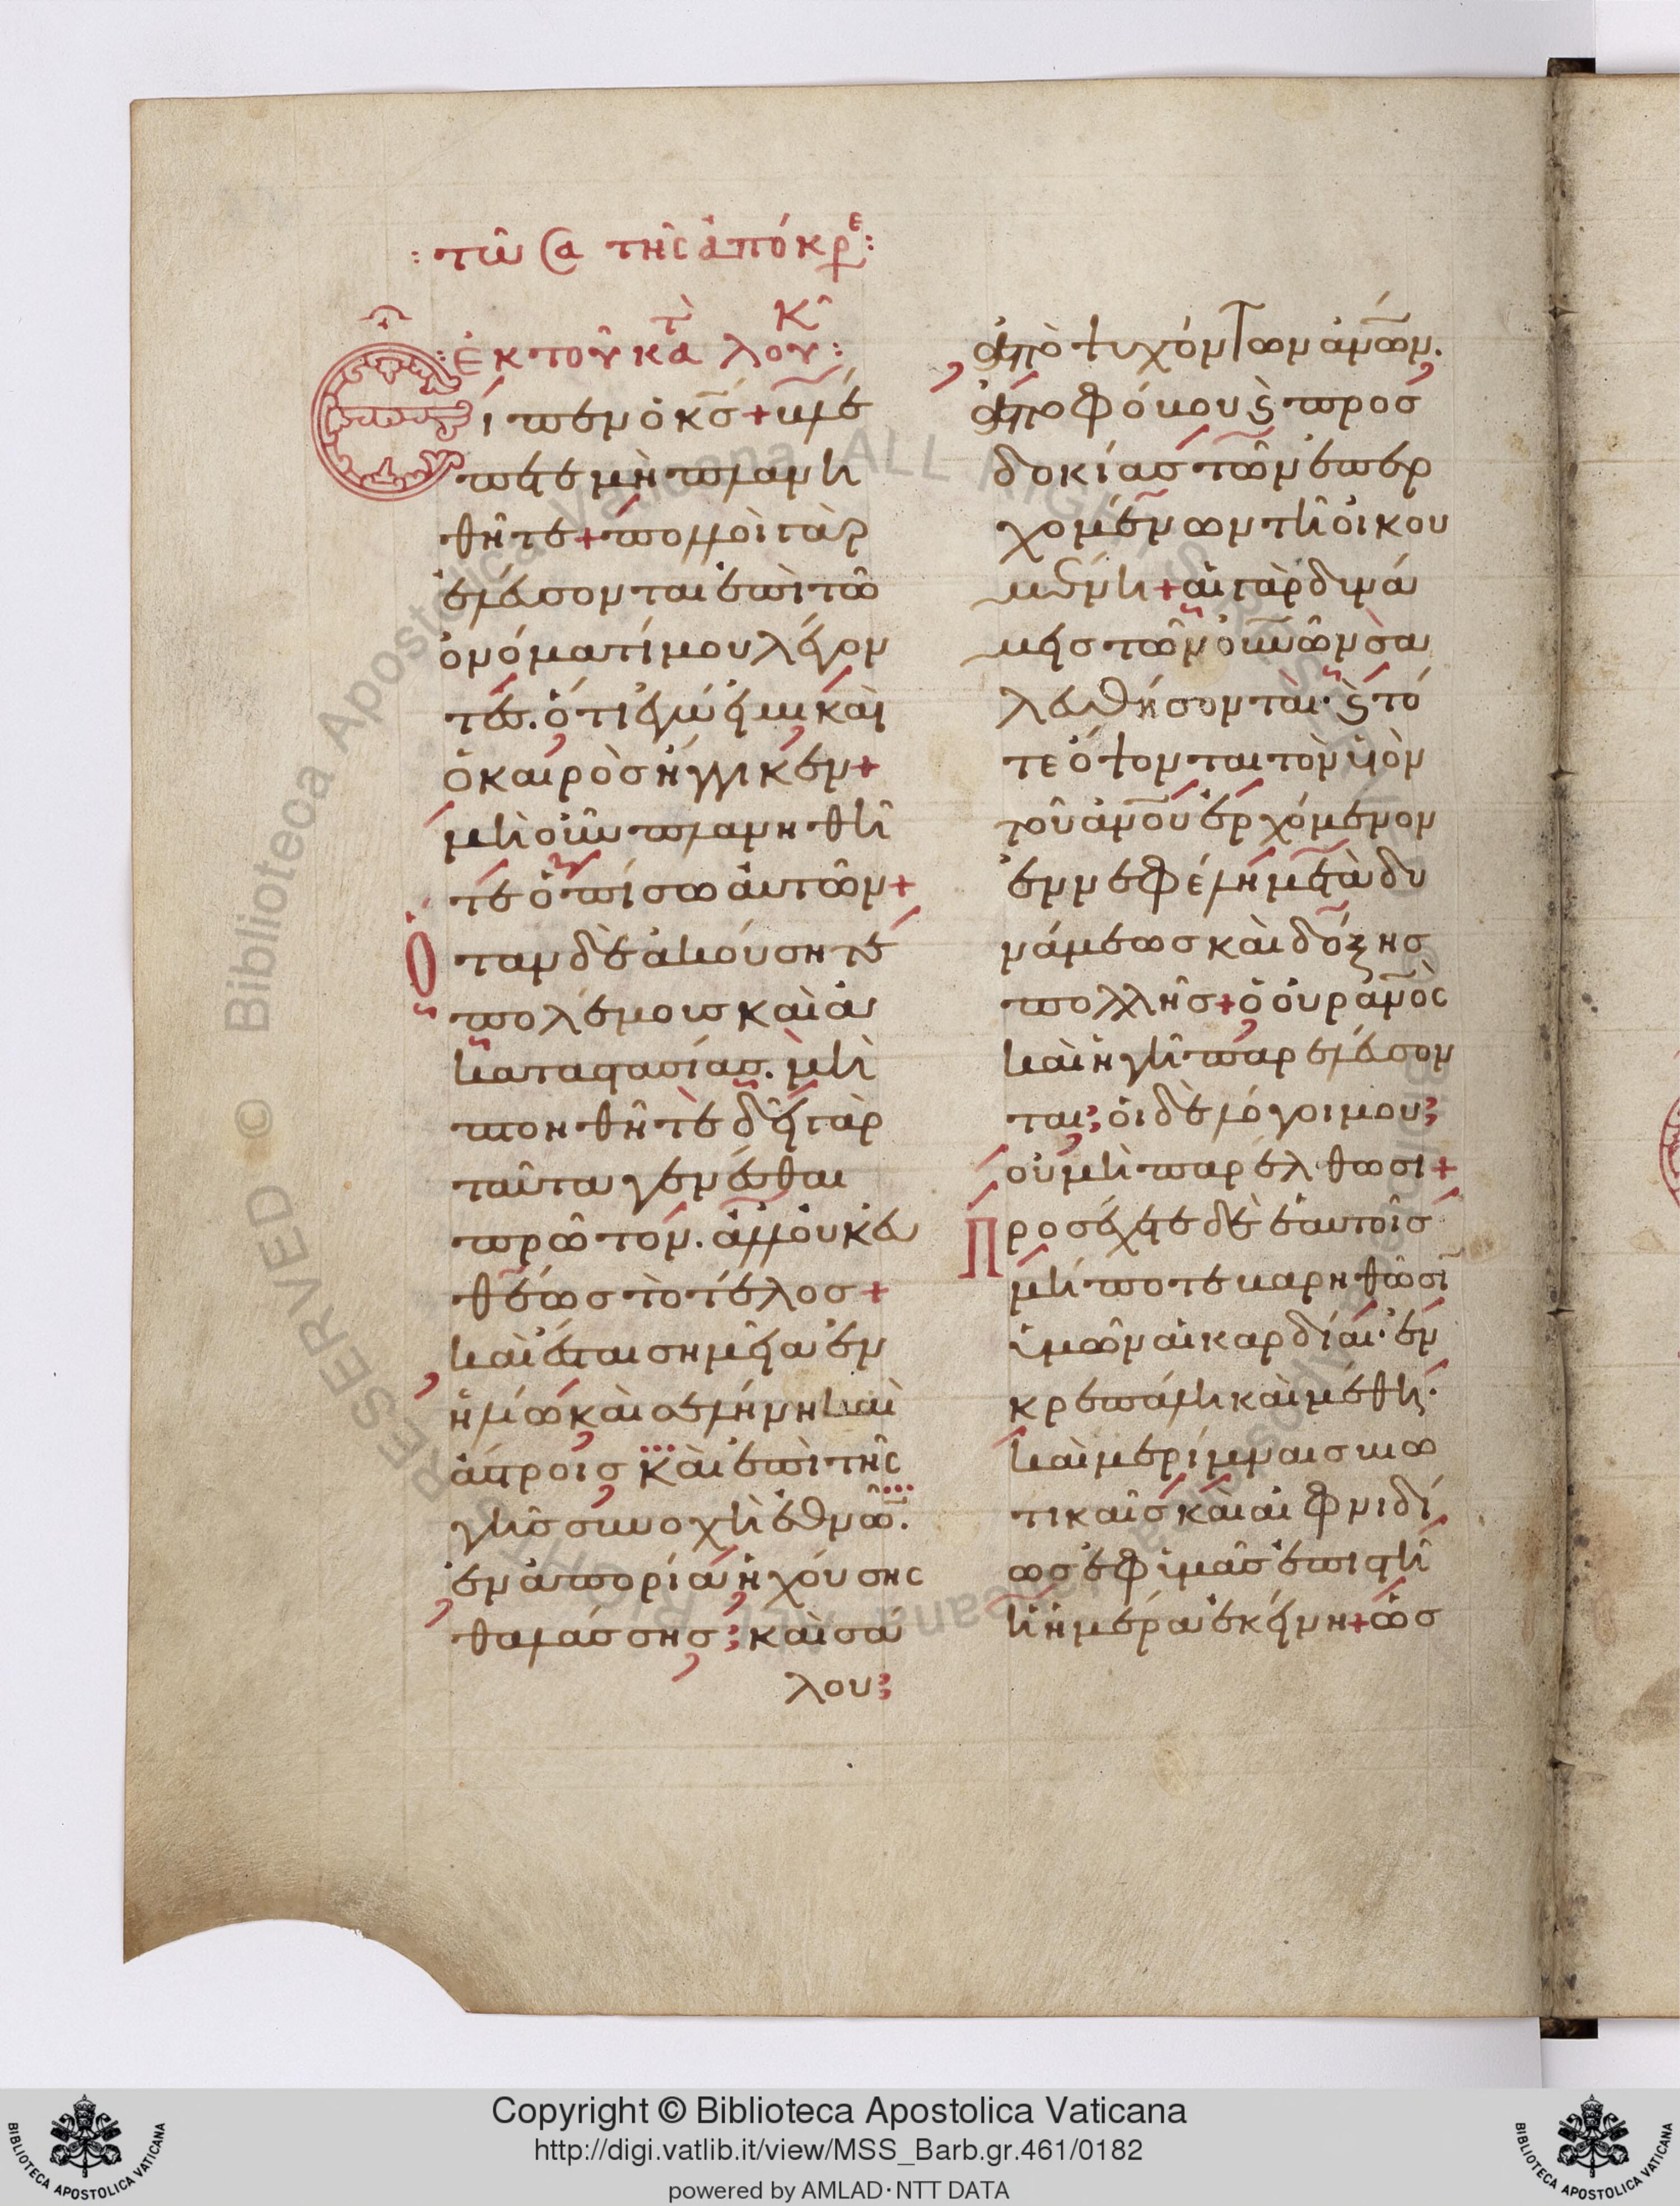 : τῶ Ϲα τῆς ἀπόκρε :
: ἐκ τοῦ κατὰ λουκ :
Εἶπεν ὁ κς + βλέ
πετε μὴ πλανη
θῆτε + πολλοὶ γὰρ
ἐλεύσονται ἐπὶ τῶ
ὀνόματί μου λέγον
τες. ὅτι ἐγώ εἰμι καὶ
ὁ καιρὸς ἤγγικεν +
μὴ οὖν πλανηθῆ
τε ὀπίσω αὐτῶν +
Ὅταν δὲ ἀκούσητε
πολέμους καὶ ἀ
καταστασίας. μὴ
πτοηθῆτε δεῖ γὰρ
ταῦτα γενέσθαι
πρῶτον. ἀλλ οὐκ εὐ
θέως τὸ τέλος +
καὶ ἔσται σημεῖα ἐν
ἡλίω καὶ σελήνη καὶ
ἄστροις καὶ ἐπὶ τῆς
γῆς συνοχὴ ἐθνῶ.
ἐν ἀπορία ἠχούσης
θαλάσσης; καὶ σά
λου;
ἀποψυχόντων ἀνων.
ἀπὸ φόβου ϗ προσ
δοκίας τῶν ἐπερ
χομένων τῆ οἰκου
μένη + αἱ γὰρ δυνά
μεις τῶν οὐνῶν σα
λευθήσονται. ϗ τό
τε ὄψονται τὸν υἱὸν
τοῦ ἀνου ἐρχόμενον
ἐν νεφέλη μετὰ δυ
νάμεως καὶ δόξης
πολλῆς + ὁ οὐρανὸς
καὶ ἡ γῆ παρελεύσον
ται; οἱ δὲ λόγοι μου;
οὐ μὴ παρέλθωσι +
Προσέχετε δὲ ἑαυτοῖς
μήποτε βαρηθῶσι
ὑμῶν αἱ καρδίαι. ἐν
κρεπάλη καὶ μέθη.
καὶ μερίμναις βιω
τικαῖς καὶ αἰφνιδί
ως ἐφ ὑμᾶς ἐπιστῆ
ἡ ἡμέρα ἐκείνη + ὡς
Copyright © Biblioteca Apostolica Vaticana
http://digi.vatlib.it/view/MSS_Barb.gr.461/0182
powered by AMLAD·NTT DATA
BIBLIOTECA APOSTOLICA VATICANA
BIBLIOTECA APOSTOLICA VATICANA